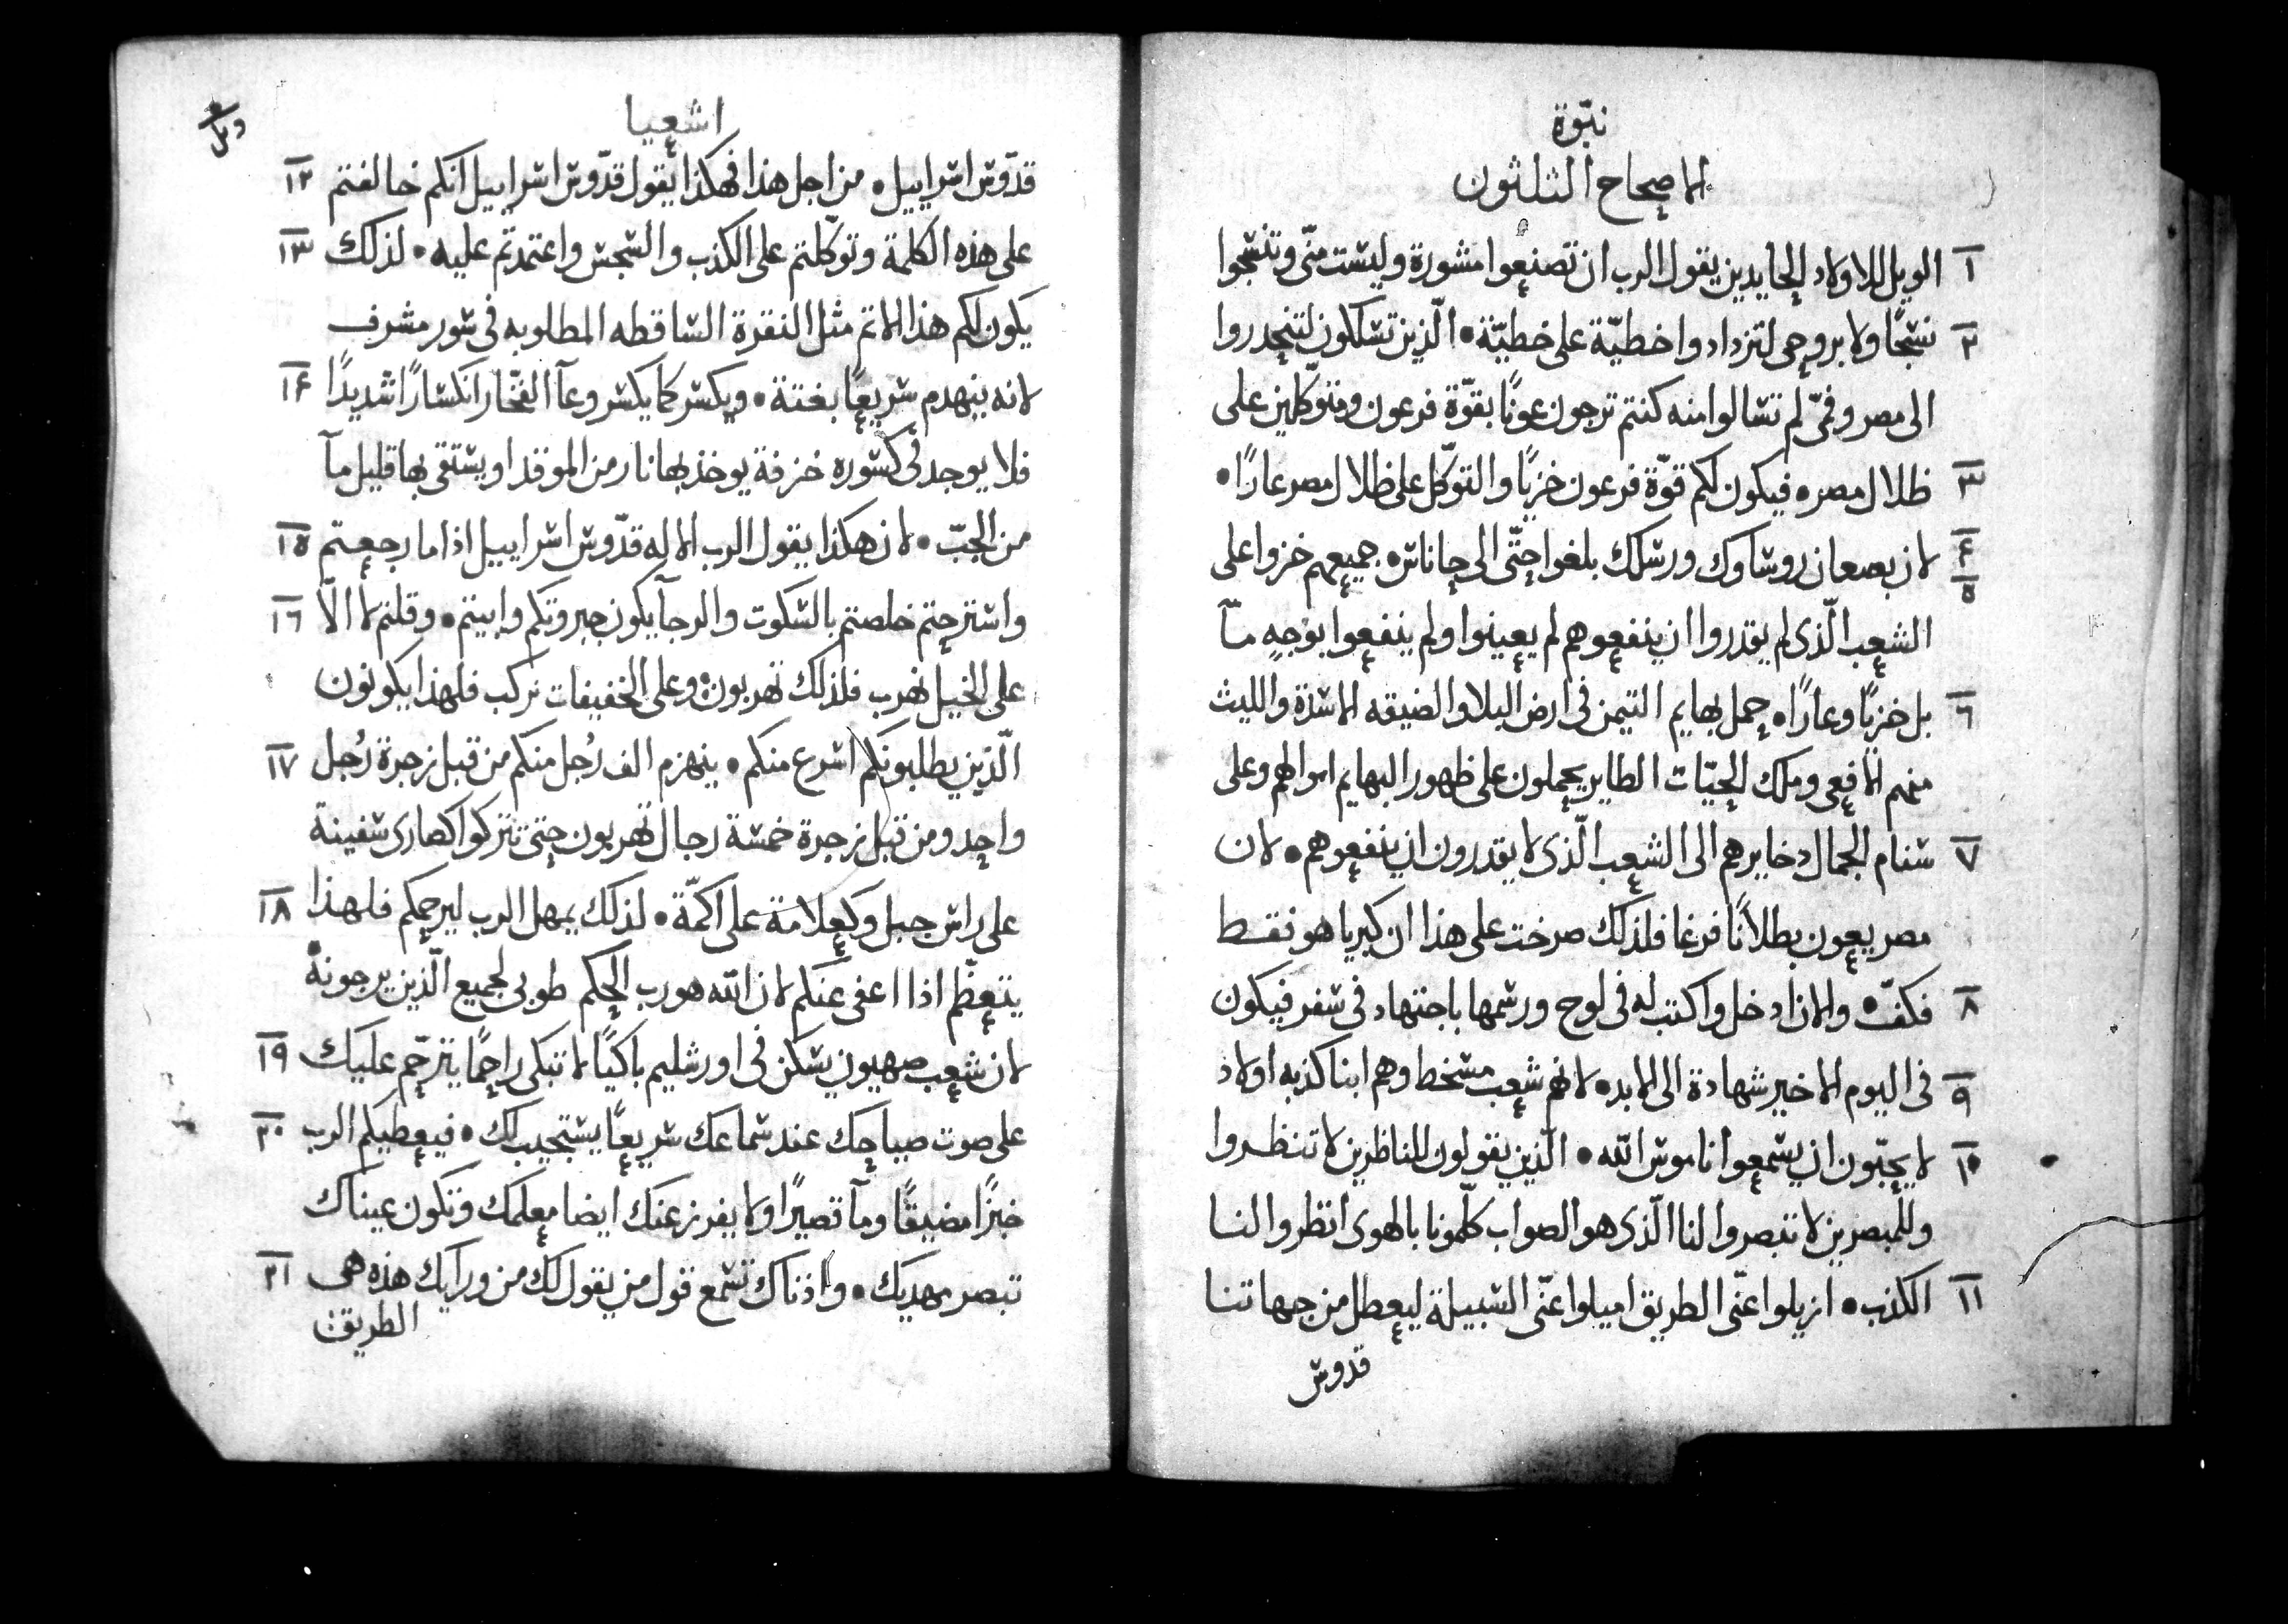 نبوّة
الاصحاح الثلثون
١ الويل للاولاد الحايدين يقول الرب ان تصنعوا مشورة وليست منّى وتنسجوا
٢ نسجًا ولا بروحى لتزدادوا خطيّة على خطيّة • الّذين تسلكون لتنحدروا
الى مصر وفمّى لم تسالوا منه كنتم ترجون عونًا بقوّة فرعون ومتوكّلين على
٣ ظلال مصر • فيكون لكم قوّة فرعون خزيًا والتوكّل على ظلال مصر عارًا •
٤ ٥ لان بصعان روساوك ورسلك بلغوا حتّى الى حاناس • جميعهم خزوا على
الشعب الّذى لم يقدروا ان ينفعوهم لم يعينوا ولم ينفعوا بوجهٍ مآ
٦ بل خزيًا وعارًا • حمل بهايم التيمن فى ارض البلا والضيقه الاسدة والليث
منهم الافعى وملك الحيّات الطاير يحملون على ظهور البهايم اموالهم وعلى
٧ سنام الجمال دخايرهم الى الشعب الّذى لا يقدرون ان ينفعوهم • لان
مصر يعون بطلانًا فرغا فلذلك صرخت على هذا ان كبريا هو فقط
٨ فكفّ • والان ادخل واكتب له فى لوح ورسمها باجتهاد فى سفر فيكون
٩ فى اليوم الاخير شهادة الى الابد • لانهم شعب مسخط وهم ابنا كذبه اولاد
١٠ لا يحبّون ان يسمعوا ناموس اللّه • الّذين يقولون للناظرين لا تنظروا
وللمبصرين لا تبصروا لنا الّذى هو الصواب كلّمونا بالهوى انظروا لنا
١١ الكذب • ازيلوا عنّى الطريق اميلوا عنّى السبيلة ليعطل من جهاتنا
قدوس
اشعيا
قدّوس اسراييل • من اجل هذا فهكذا يقول قدّوس اسراييل انكم خالفتم ١٢
على هذه الكلمة وتوكّلتم على الكذب والسجس واعتمدتم عليه • لذلك ١٣
يكون لكم هذا الاثم مثل النقرة الساقطه المطلوبه فى سور مشرف
لانه ينهدم سريعًا بغتة • ويكسر كما يكسر وعآ الفخّار انكسارًا شديدًا ١٤
فلا يوجد فى كسوره خزفة يوخذ بها نار من الموقد او يستقى بها قليل مآ
من الجبّ • لان هكذا يقول الرب الاله قدّوس اسراييل اذا ما رجعتم ١٥
واسترحتم خلصتم بالسكوت والرجآ يكون جبروتكم وابيتم • وقلتم لا الّا ١٦
على الخيل نهرب فلذلك تهربون وعلى الخفيفات نركب فلهذا يكونون
الّذين يطلبونكم اسرع منكم • ينهزم الف رُجل منكم من قبل زجرة رُجل ١٧
واحد ومن قبل زجرة خمسة رجال تهربون حتى تتركوا كصارى سفينة
على راس جبل وكعلامة على اكمّة • لذلك يمهل الرب ليرحمكم فلهذا ١٨
يتعظّم اذا اعفى عنكم لان اللّه هو رب الحكم طوبى لجميع الّذين يرجونه
لان شعب صهيون يسكن فى اورشليم باكيًا لا تبكى راحمًا يترحّم عليك ١٩
على صوت صياحك عند سماعك سريعًا يستجيب لك • فيعطيكم الرب ٢٠
خبزًا مضيقًا ومآ قصيرًا ولا يفرز عنك ايضا معلمك وتكون عيناك
تبصر مهديك • واذناك تسمع قول من يقول لك من ورايك هذه هى ٢١
الطريق